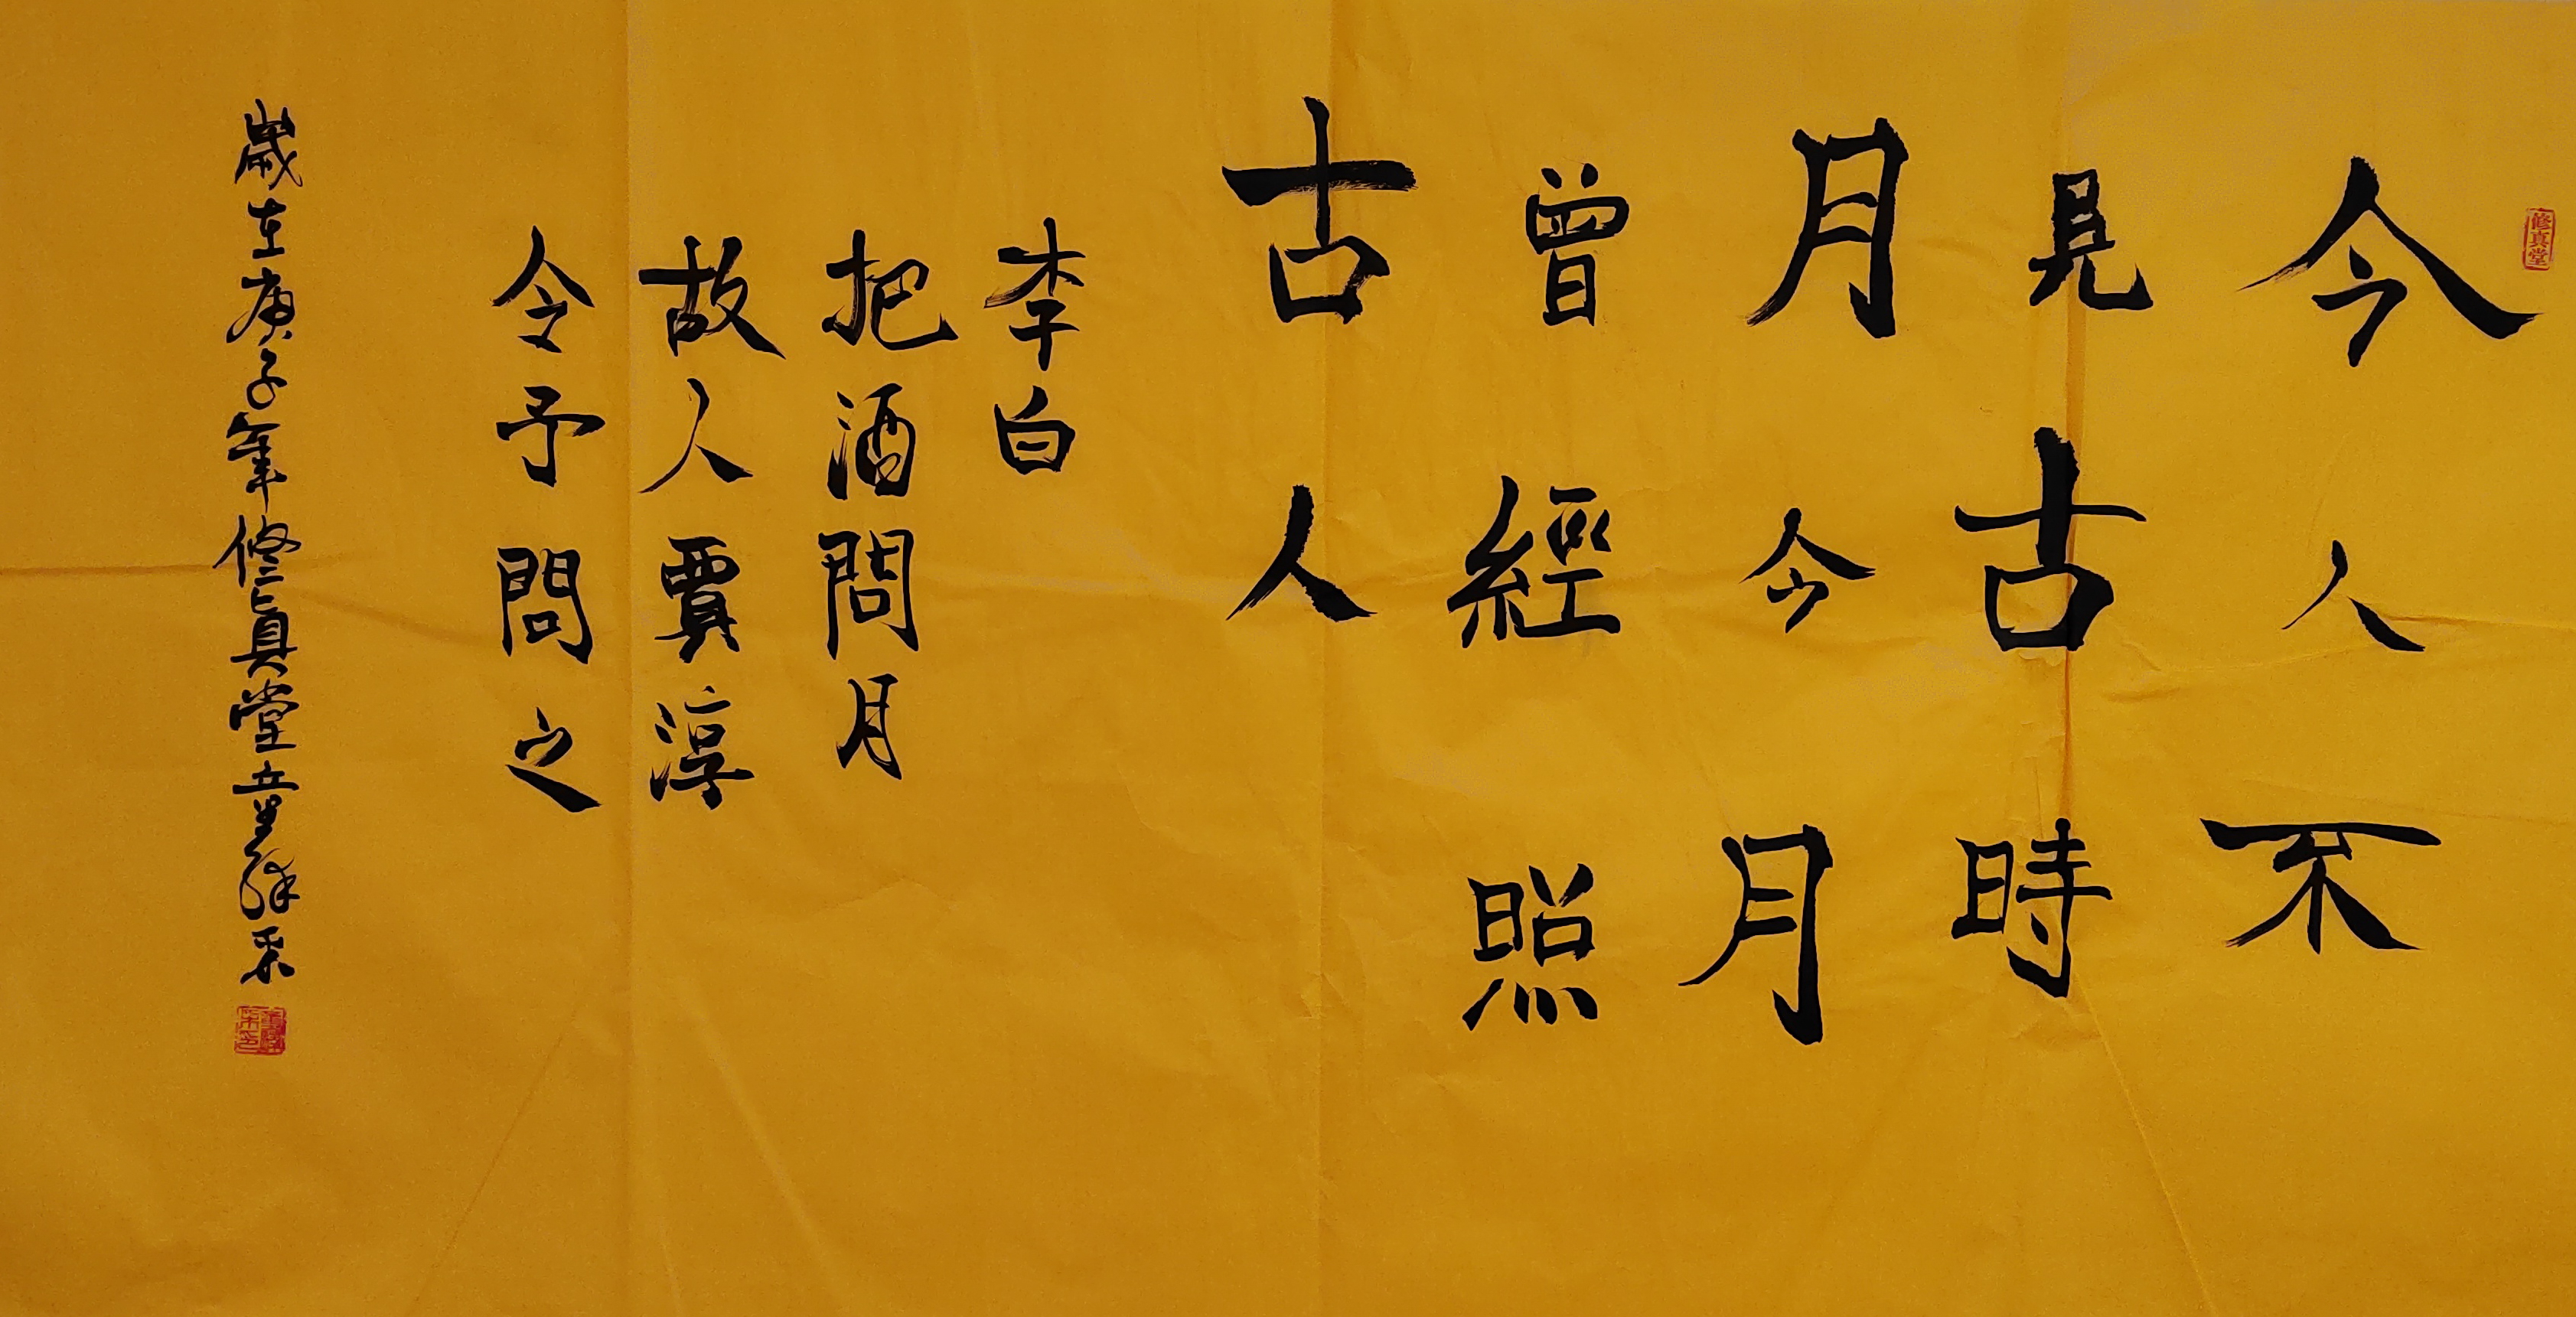 修真堂
今人不
見古時
月今月
曾經照
古人
李白
把酒問月
故人賈淳
令予問之
歲在庚子年修真堂主